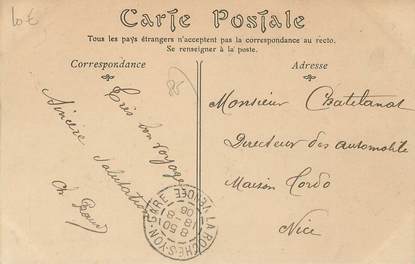 10 €
Carte Postale
Tous les pays étrangers n'acceptent pas la correspondance au recto.
Se renseigner à la poste.
Correspondance
Adresse
25
Très bon voyage
Sincère salutation
Ch
Monsieur Chatelanat
Directeur des automobile
Maison Cordo
Nice
LA ROCHE-S-YON-GARE
VENDÉE
8 50
18 - 8
06